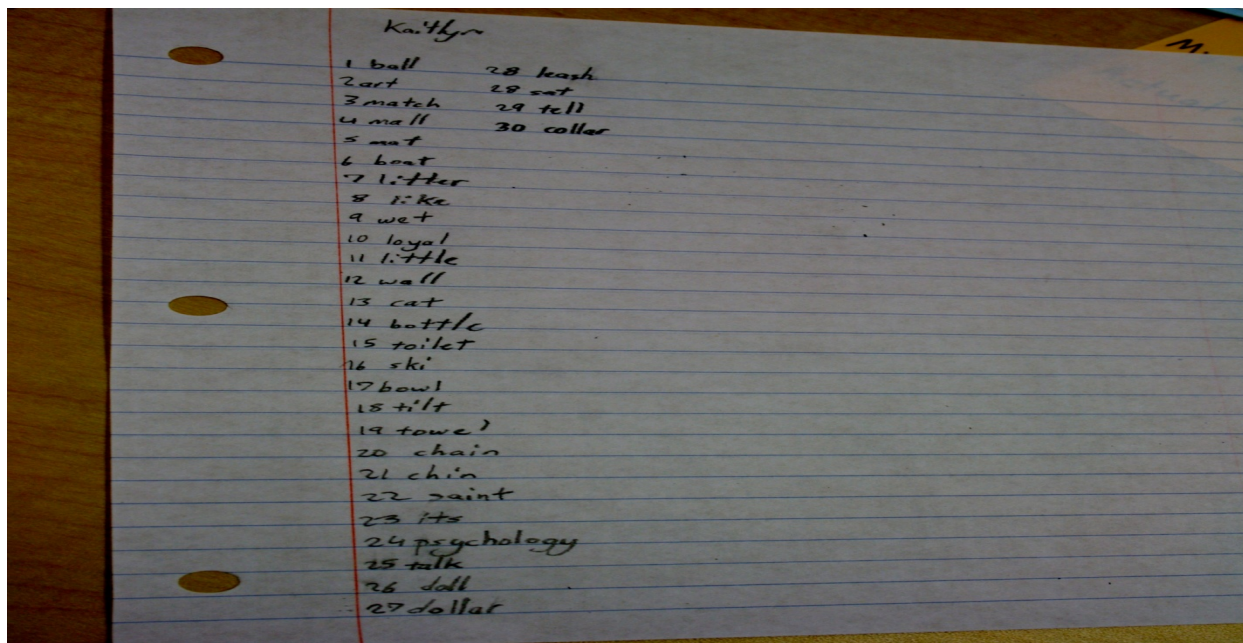 Kaitlyn
1 ball
2 art
3 match
4 mall
5 mat
6 boat
7 litter
8 like
9 wet
10 loyal
11 little
12 wall
13 cat
14 bottle
15 toilet
16 ski
17 bowl
18 tilt
19 towel
20 chain
21 chin
22 saint
23 its
24 psychology
25 talk
26 doll
27 dollar
28 leash
28 sat
29 tell
30 collar
M.